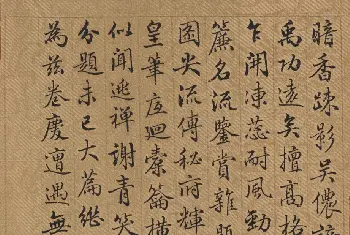 暗香疎影吳儂
禹功遠矣擅髙格
乍開凍蕊耐風勁
名流鑒賞雜
流傳秘府輝
皇筆迴橐籥橫
似聞逃禪謝青笑
分題未已大篇繼
為茲卷慶遭遇無